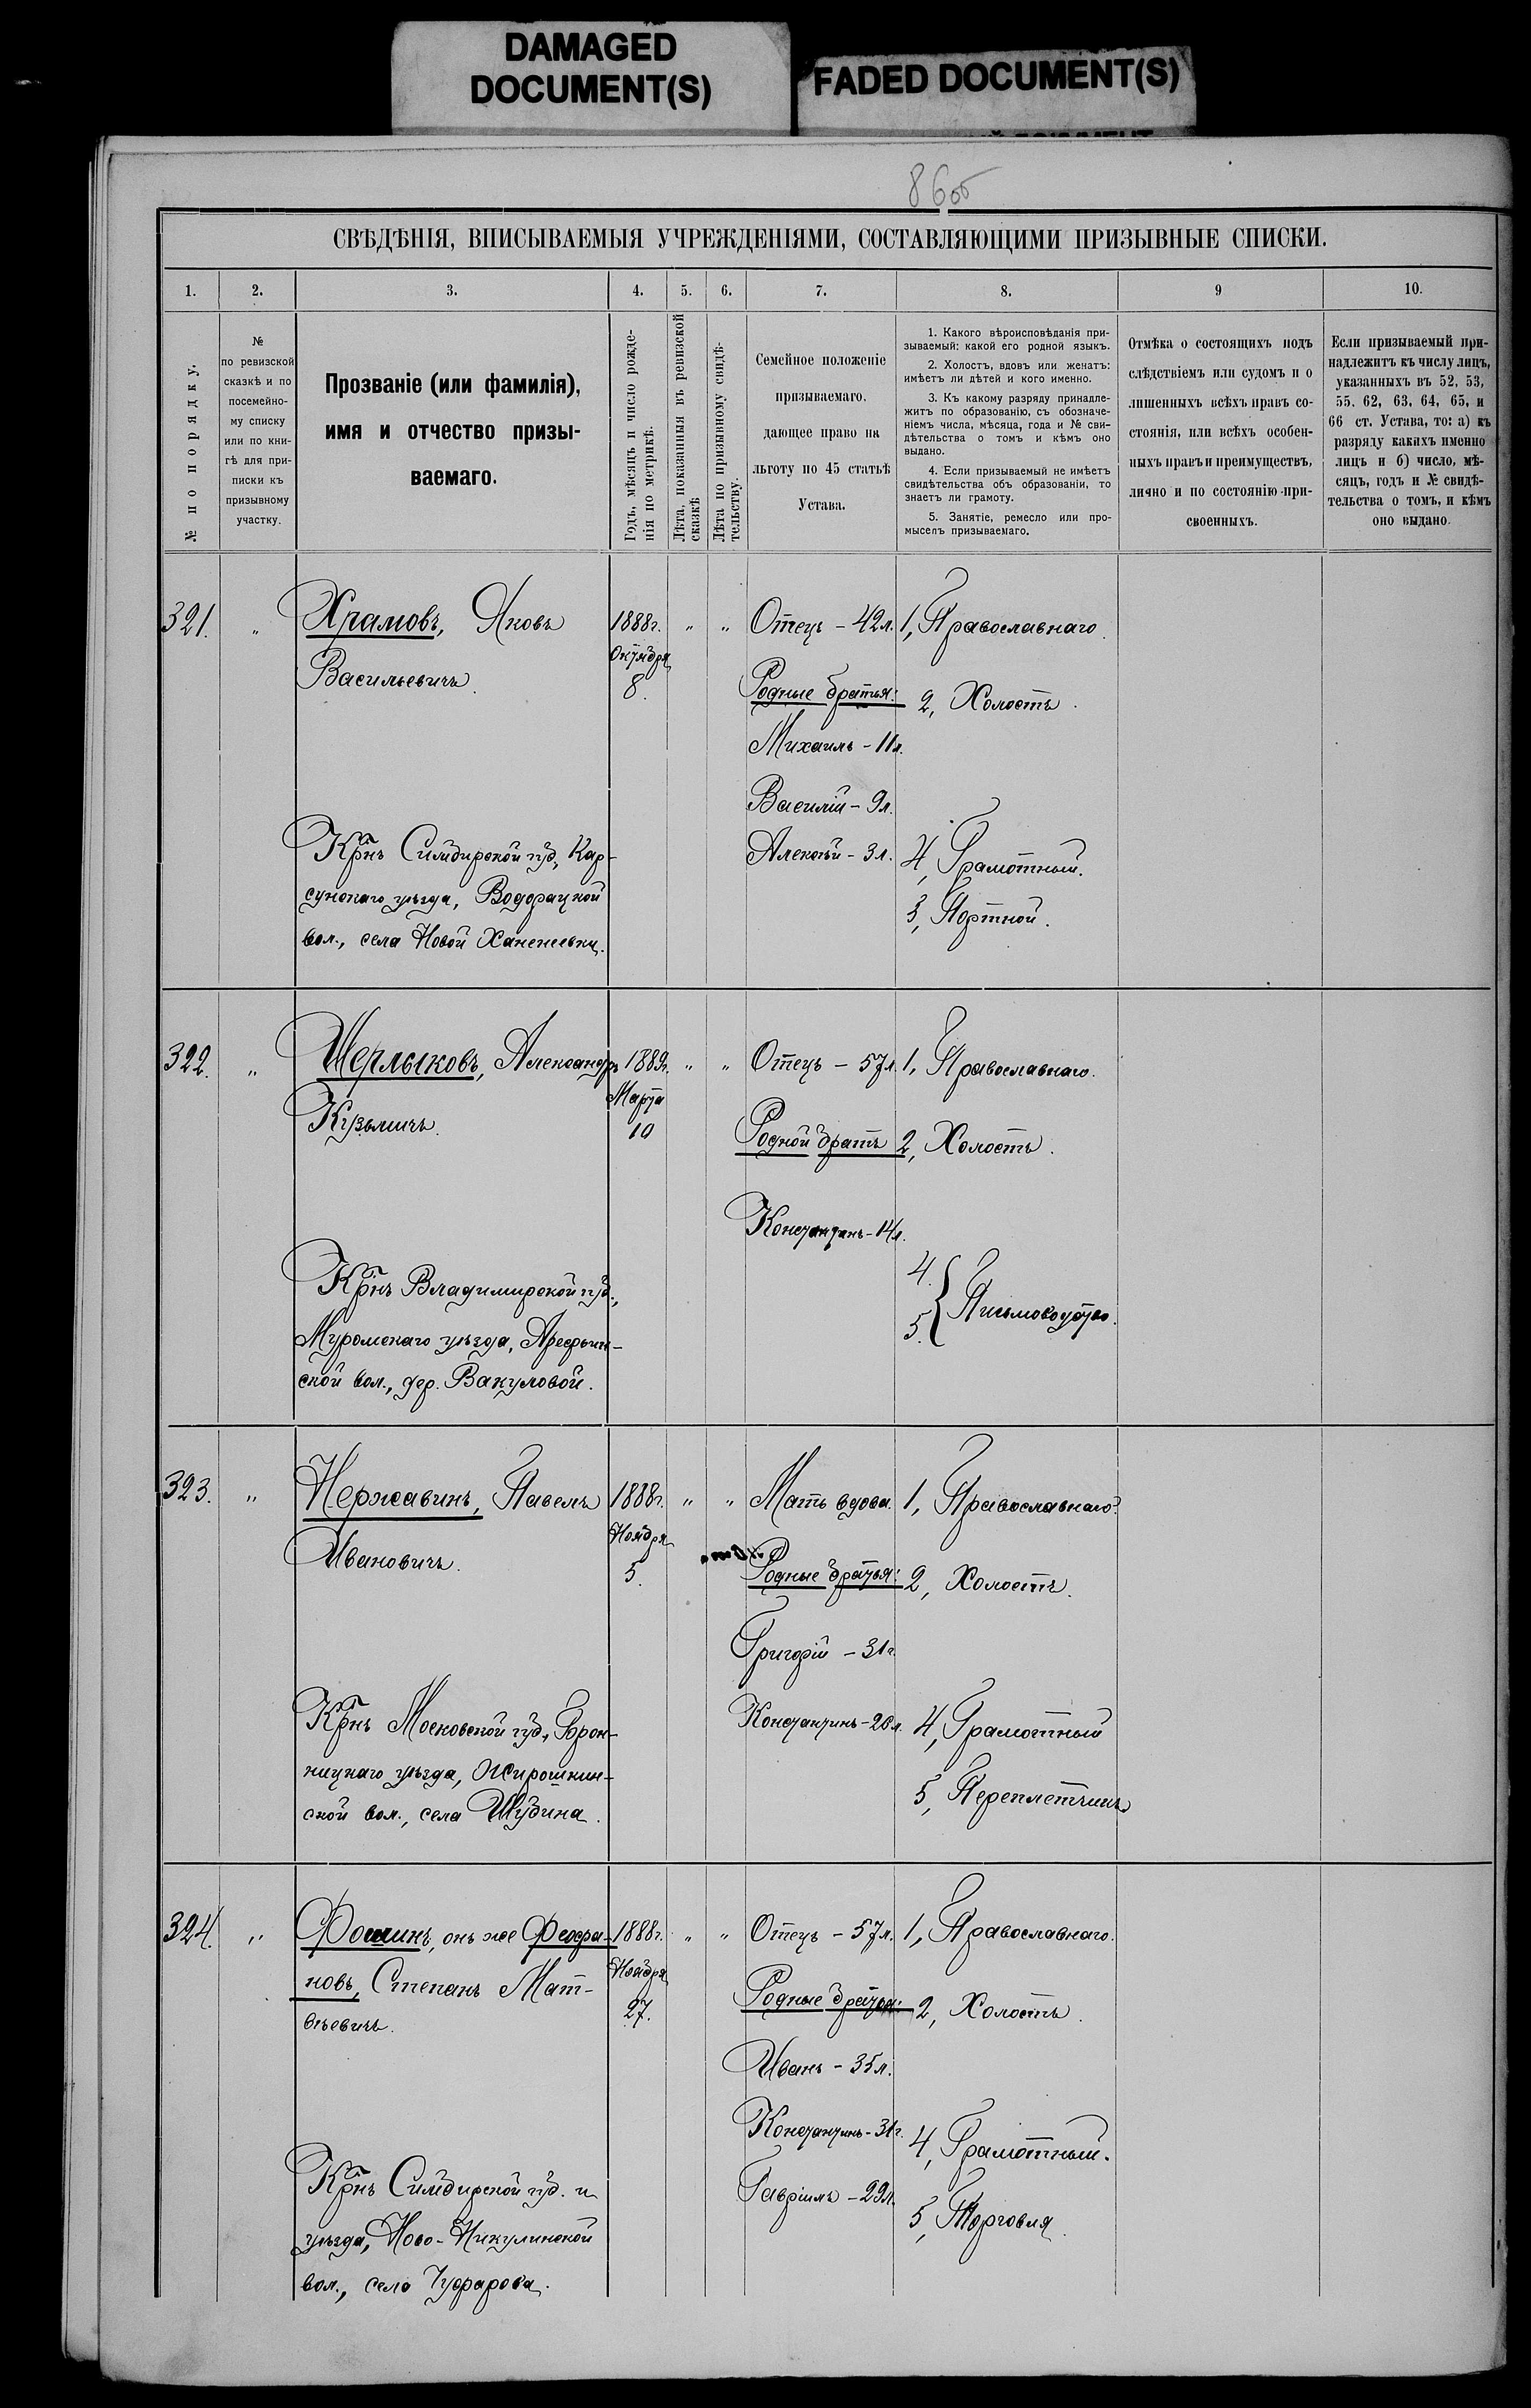 DAMAGED
DOCUMENT(S)
FADED DOCUMENT(S)
86об
СВѢДѢНІЯ, ВПИСЫВАЕМЫЯ УЧРЕЖДЕНІЯМИ, СОСТАВЛЯЮЩИМИ ПРИЗЫВНЫЕ СПИСКИ.
1. 2. 3. 4. 5. 6. 7. 8. 9 10.
№ по порядку.
№
по ревизской
сказкѣ и по
посемейно-
му списку
или по кни-
гѣ для при-
писки къ
призывному
участку.
Прозваніе (или фамилія),
имя и отчество призы-
ваемаго.
Годъ, мѣсяцъ и число рожде-
нія по метрикѣ.
Лѣта, показанныя въ ревизской
сказкѣ
Лѣта по призывному свидѣ-
тельству.
Семейное положеніе
призываемаго,
дающее право на
льготу по 45 статьѣ
Устава.
1. Какого вѣроисповѣданія при-
зываемый; какой его родной языкъ.
2. Холостъ, вдовъ или женатъ:
имѣетъ ли дѣтей и кого именно.
3. Къ какому разряду принадле-
житъ по образованію, съ обозначе-
ніемъ числа, мѣсяца, года и № сви-
дѣтельства о томъ и кѣмъ оно
выдано.
4. Если призываемый не имѣетъ
свидѣтельства объ образованіи, то
знаетъ ли грамоту.
5. Занятіе, ремесло или про-
мыселъ призываемаго.
Отмѣка о состоящихъ подъ
слѣдствіемъ или судомъ и о
лишенныхъ всѣхъ правъ со-
стоянія, или всѣхъ особен-
ныхъ правъ и преимуществъ,
лично и по состоянію при-
своенныхъ.
Если призываемый при-
надлежитъ къ числу лицъ,
указанныхъ въ 52, 53,
55. 62, 63, 64, 65, и
66 ст. Устава, то: а) къ
разряду какихъ именно
лицъ и б) число, мѣ-
сяцъ, годъ и № свидѣ-
тельства о томъ, и кѣмъ
оно выдано.
321. " Храмовъ, Яковъ
Васильевичъ.
Крнъ Симбирской губ., Кар-
сунскаго уѣзда, Водорацкой
вол., села Новой
1888г.
Октября
8.
" "
Отецъ - 42л.
Родные братья:
Михаилъ - 11л.
Василій - 9л.
Алексѣй - 3л.
1, Православнаго.
2, Холостъ.
4, Грамотный.
5, Портной.
322. " Шерлыковъ, Александръ
Кузьмичъ.
Крнъ Владимирской губ.,
Муромскаго уѣзда, Арефин-
ской вол., дер. Вакуловой.
1889г.
Марта
10
" "
Отецъ - 57л.
Родной братъ
Константинъ - 14л.
1, Православнаго.
2, Холостъ.
4.
5. } Письмоводство.
323. " Нержавинъ, Павелъ
Ивановичъ.
Крнъ Московской губ., Брон-
ницкаго уѣзда, Жирошкин-
ской вол., села Шубина.
1888г.
Ноября
5.
" "
Мать вдова.
Родные братья:
Григорій - 31г.
Константинъ - 26л.
1, Православнаго.
2, Холостъ.
4, Грамотный
5, Переплетчикъ
324. " Фоминъ, онъ же Феофа-
новъ, Степанъ Мат-
вѣевичъ.
Крнъ Симбирской губ. и
уѣзда, Ново-Никулинской
вол., село Чуфарова.
1888г.
Ноября
27.
" "
Отецъ - 57л.
Родные братья:
Иванъ - 35л.
Константинъ - 31г.
Гавріилъ - 29л.
1, Православнаго.
2, Холостъ.
4, Грамотный.
5, Торговля